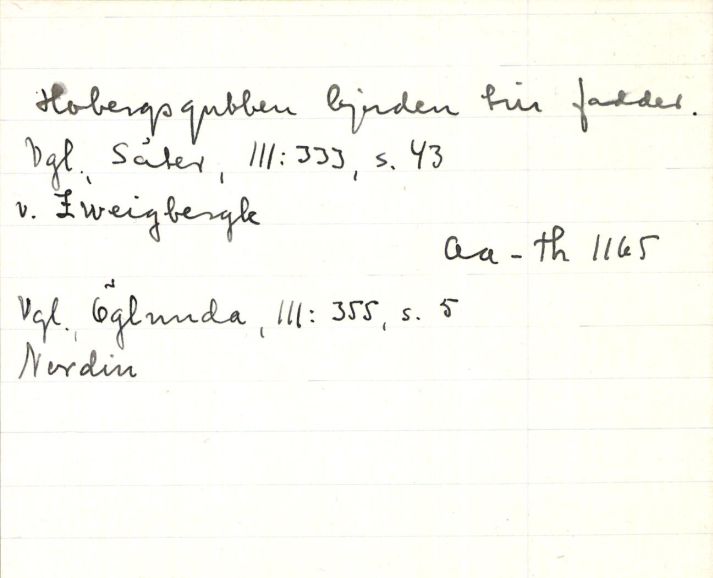 Hobergsgubben bjuden till fadder.
Vgl., Säter, III: 333, s. 43
v. Zweigbergk
Aa-Th 1165
Vgl., Öglunda, III: 355, s. 5
Nordin